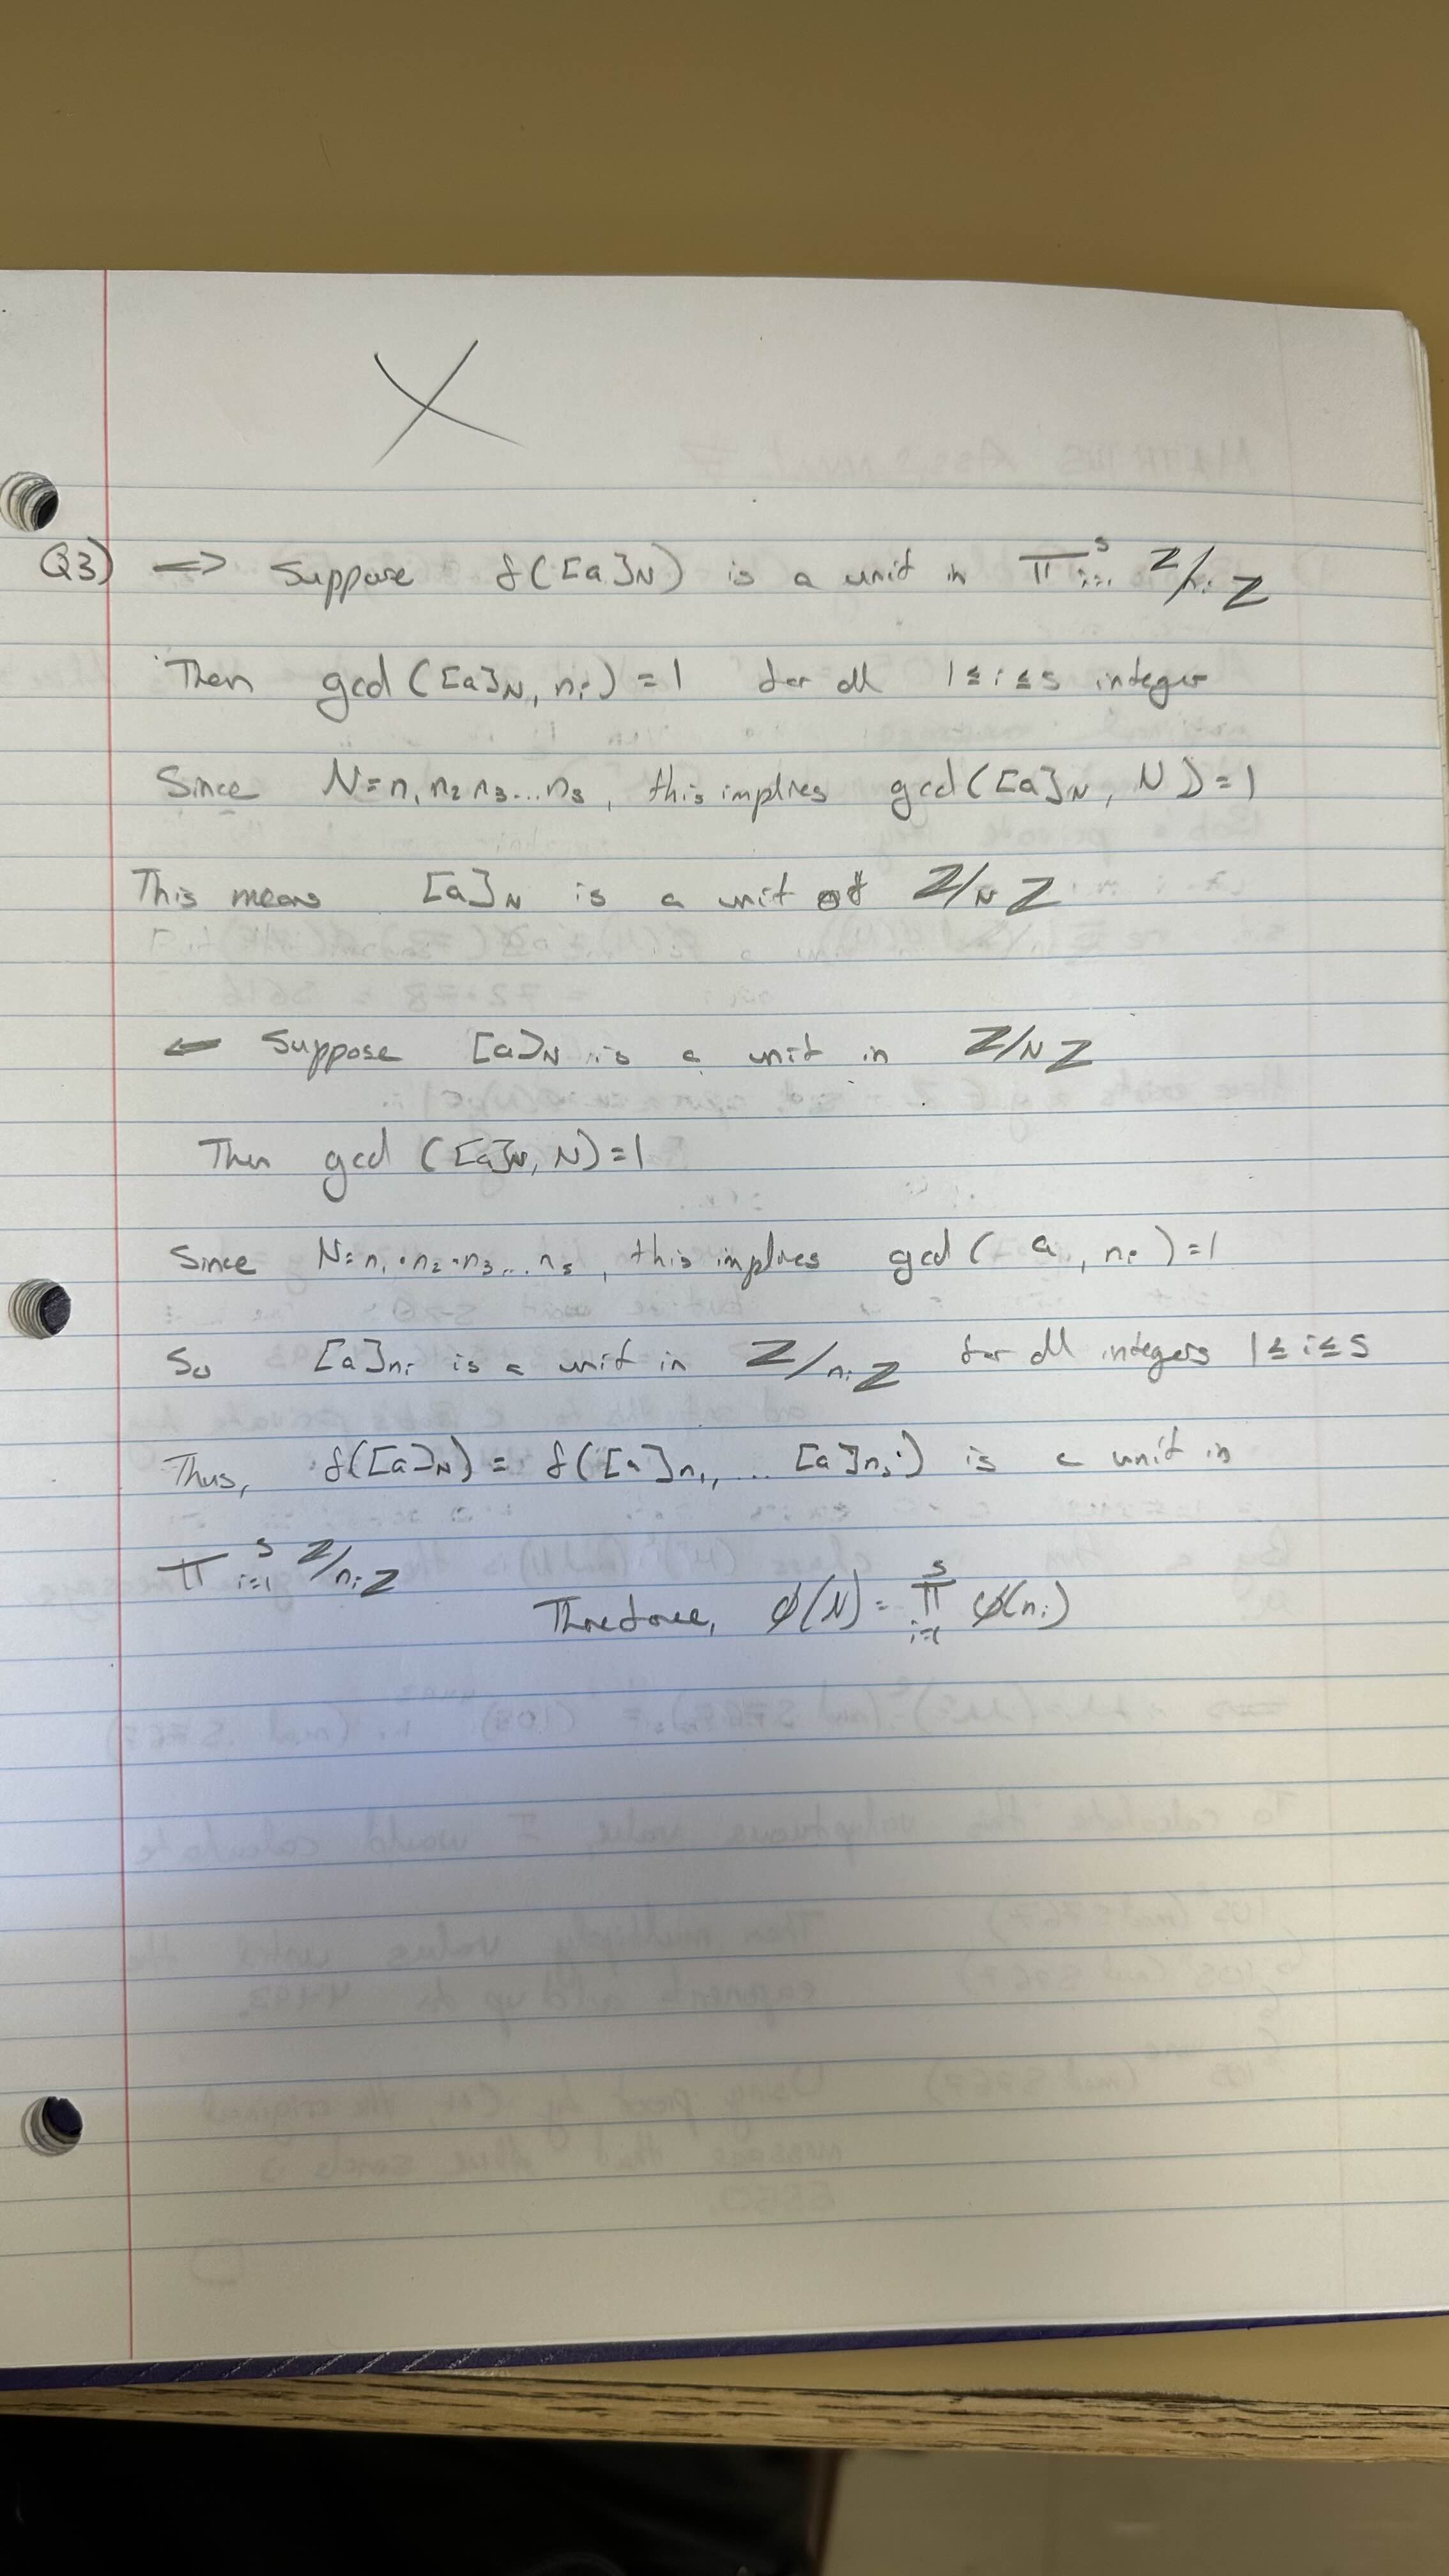 X
Q3) => Suppose f([a]N) is a unit in π^s i=1 Z/niZ
Then gcd([a]N, ni) = 1 for all 1≤i≤s integer
Since N=n1 n2 n3...ns, this implies gcd([a]N, N) = 1
This means [a]N is a unit of Z/NZ
<= Suppose [a]N is a unit in Z/NZ
Then gcd([a]N, N)=1
Since N=n1·n2·n3...ns, this implies gcd(a, ni)=1
So [a]ni is a unit in Z/niZ for all integers 1≤i≤s
Thus, f([a]N) = f([a]n1, ... [a]ns) is a unit in
π^s i=1 Z/niZ
Therefore, φ(N) = π^s i=1 φ(ni)